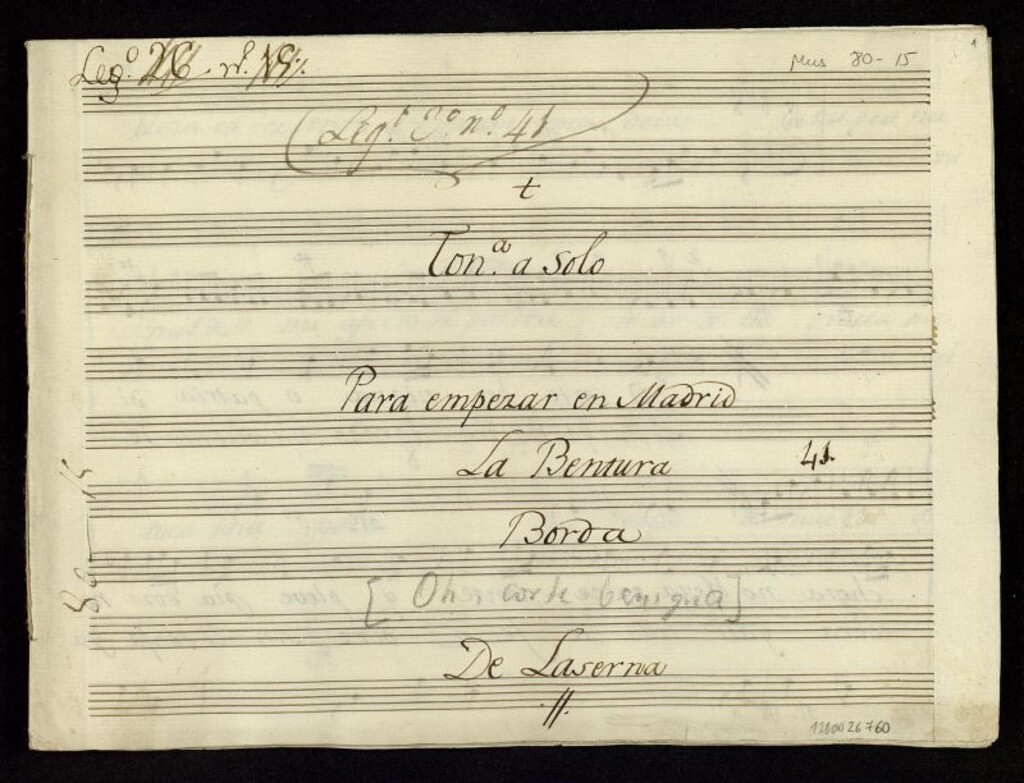 Leg.º 26 nº.
Mus 80-15
1
Leg.º 3º nº. 41
t
Ton.ª a Solo
Para empezar en Madrid
La Bentura 41
Borda
[Oh, corte benigna]
De Laserna
1200026760
80-15